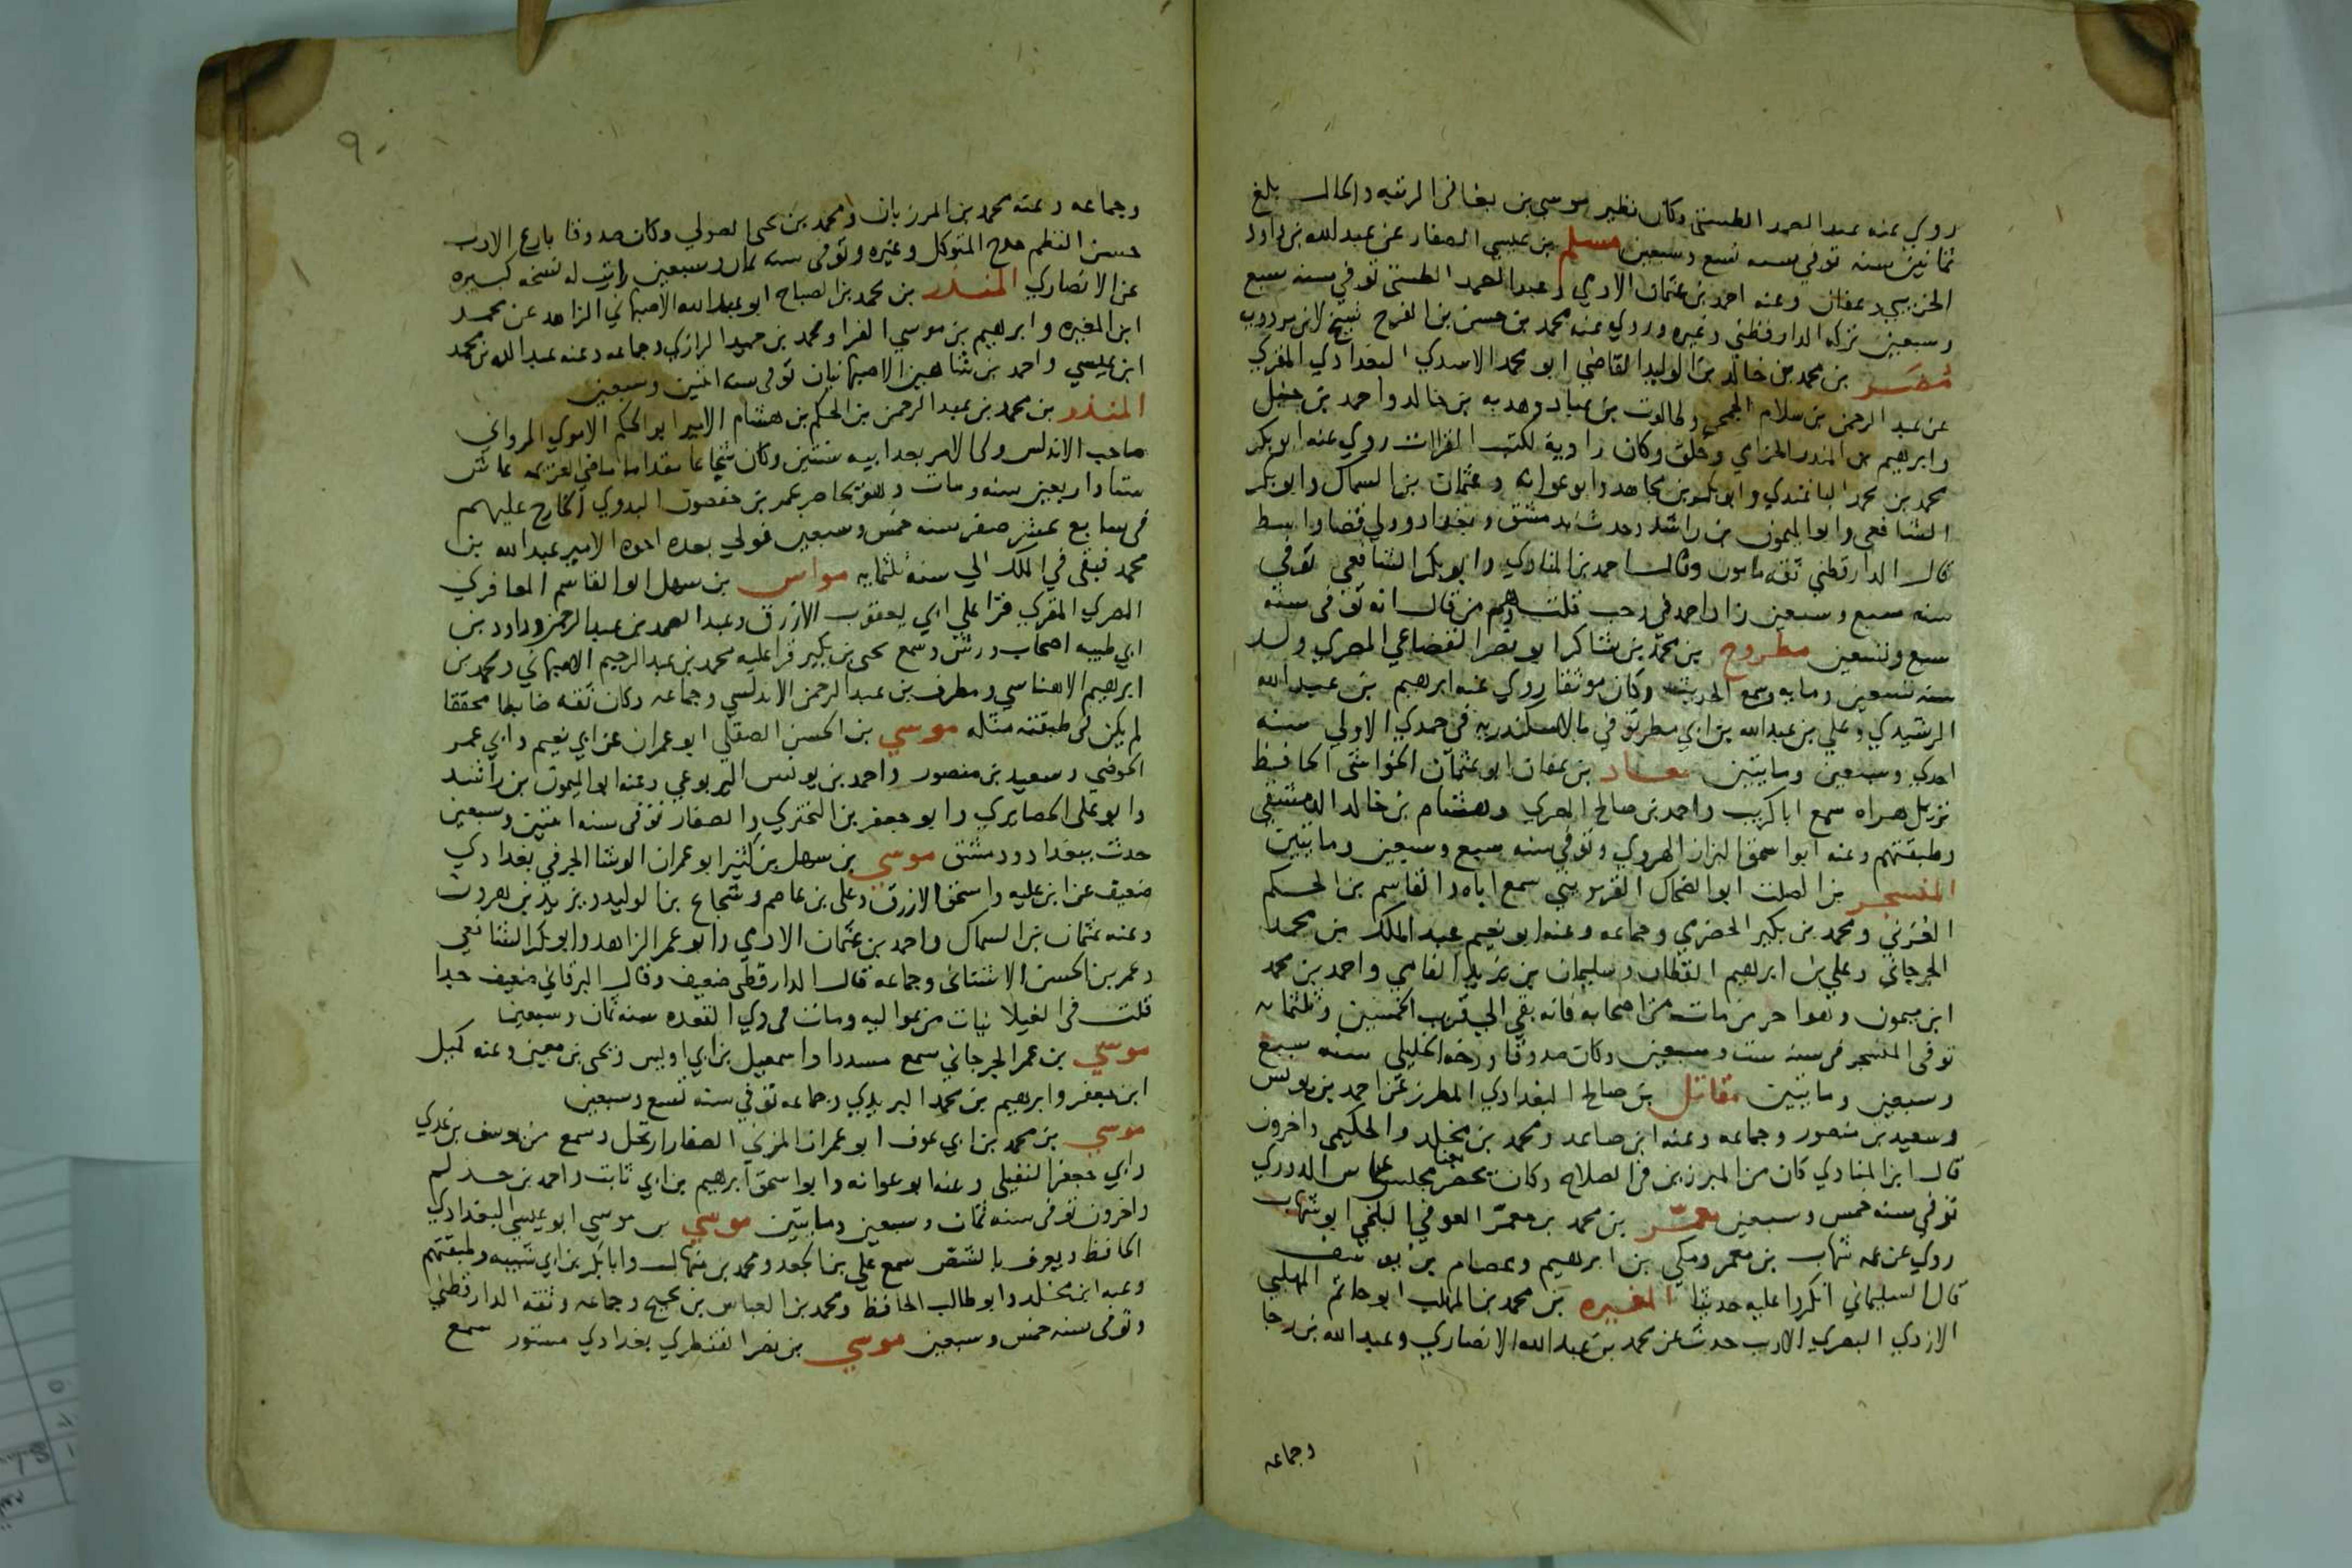 روي عنه عبد الصمد الطستي وكان نظير موسي بن بغا في الرتبه والحال بلغ
ثمانين سنه توفي سنه تسع وسبعين مسلم بن عيسي الصفار عن عبد الله بن داود
الخريبي وعفان وعنه احمد بن عثمان الادمي وعبد الصمد الطستي توفي سنه سبع
وسبعين تركه الدارقطني وغيره وروي عنه محمد بن حسن بن الفرج شيخ لابن مردويه
مضر بن محمد بن خالد بن الوليد القاضي ابو محمد الاسدي البغدادي المقري
عن عبد الرحمن بن سلام الجمحي وطالوت بن عباد وهدبه بن خالد واحمد بن حنبل
وابرهيم بن المنذر الحزامي وخلق وكان راوية لكتب القراات روي عنه ابو بكر
محمد بن محمد الباغندي وابو بكر بن مجاهد وابو عوانه وعثمان بن السماك وابو بكر
الشافعي وابو الميمون بن راشد وحدث بدمشق وبغداد وولي قضا واسط
قال الدارقطني ثقه مامون وقال احمد بن المنادي وابو بكر الشافعي توفي
سنه سبع وسبعين زاد احمد في رجب قلت وهم من قال انه توفي سنه
سبع وتسعين مطروح بن محمد بن شاكر ابو نصر القضاعي المصري ولد
سنه تسعين ومايه وسمع الحديث وكان موثقا روي عنه ابرهيم بن عبد الله
الرشيدي وعلي بن عبد الله بن ابي مطر توفي بالاسكندريه في جمدي الاولي سنه
احدي وسبعين ومايتين معاد بن عفان ابو عثمان الخواشتي الحافظ
نزيل هراه سمع ابا كريب واحمد بن صالح المصري وهشام بن خالد الدمشقي
وطبقتهم وعنه ابو اسحق البزاز الهروي وتوفي سنه سبع وسبعين ومايتين
المنسجر بن الصلت ابو الضحاك القزويني سمع اباه والقاسم بن الحكم
العرني ومحمد بن بكير الحضرمي وجماعه وعنه ابو نعيم عبد الملك بن محمد
الجرجاني وعلي بن ابرهيم القطان وسليمان بن يزيد الفامي واحمد بن محمد
ابن ميمون وهو اخر من مات من اصحابه فانه بقي الي قرب الخمسين وثلثمايه
توفي المنسجر في سنه ست وسبعين وكان صدوقا ورخه الخليلي سنه سبع
وسبعين ومايتين مقاتل بن صالح البغدادي المطرز عن احمد بن يونس
وسعيد بن منصور وجماعه وعنه ابن صاعد ومحمد بن مخلد والحكيمي واخرون
قال ابن المنادي كان من المبرزين في الصلاح وكان يحضر مجلس عباس الدوري
توفي سنه خمس وسبعين معمر بن محمد بن معمر العوفي البلخي ابو شهاب
روي عن عمه شهاب بن معمر ومكي بن ابرهيم وعصام بن يوسف
قال السليماني انكروا عليه حديثا المغيره بن محمد بن المهلب ابو حاتم المهلبي
الازدي البصري الاديب حدث عن محمد بن عبد الله الانصاري وعبد الله بن رجا
وجماعه
٩٠
وجماعه وعنه محمد بن المرزبان ومحمد بن يحيى الصولي وكان صدوقا بارع الادب
حسن النظم مدح المتوكل وغيره وتوفي سنه ثمان وسبعين رايت له نسخه كبيره
عن الانصاري المنذر بن محمد بن الصباح ابو عبد الله الاصبهاني الزاهد عن محمد
ابن المغيره وابرهيم بن موسي الفرا ومحمد بن حميد الرازي وجماعه وعنه عبد الله بن محمد
ابن عيسي واحمد بن شاهين الاصبهانيان توفي سنه اثنين وسبعين
المنذر بن محمد بن عبد الرحمن بن الحكم بن هشام الامير ابو الحكم الاموي المرواني
صاحب الاندلس ولي الامر بعد ابيه سنتين وكان شجاعا مقداما ماضي العزيمه عاش
ستا واربعين سنه ومات وهو يحاصر عمر بن حفصون البدوي الخارج عليهم
في سابع عشر صفر سنه خمس وسبعين فولي بعده اخوه الامير عبد الله بن
محمد فبقي في الملك الي سنه ثلثمايه مواس بن سهل ابو القاسم المعافري
المصري المقري قرا علي ابي يعقوب الازرق وعبد الصمد بن عبد الرحمن وداود بن
ابي طيبه اصحاب ورش وسمع يحيى بن بكير قرا عليه محمد بن عبد الرحيم الاصبهاني ومحمد بن
ابرهيم الاهناسي ومطرف بن عبد الرحمن الاندلسي وجماعه وكان ثقه ضابطا محققا
لم يكن في طبقته مثله موسي بن الحسن الصقلي ابو عمران عن ابي نعيم وابي عمر
الحوضي وسعيد بن منصور واحمد بن يونس اليربوعي وعنه ابو الميمون بن راشد
وابو علي الحصايري وابو جعفر بن البختري والصفار توفي سنه اثنين وسبعين
حدث ببغداد ودمشق موسي بن سهل بن كثير ابو عمران الوشا الحرفي بغدادي
ضعيف عن ابن عليه واسحق الازرق وعلي بن عاصم وشجاع بن الوليد ويزيد بن هرون
وعنه عثمان بن السماك واحمد بن عثمان الادمي وابو عمر الزاهد وابو بكر الشافعي
وعمر بن الحسن الاشناني وجماعه قال الدارقطني ضعيف وقال البرقاني ضعيف جدا
قلت في الغيلانيات من عواليه ومات في ذي القعده سنه ثمان وسبعين
موسي بن عمر الجرجاني سمع مسددا واسمعيل بن ابي اويس ويحيى بن معين وعنه كميل
ابن جعفر وابرهيم بن محمد اليزيدي وجماعه توفي سنه تسع وسبعين
موسي بن محمد بن ابي عوف ابو عمران المزني الصفار ارتحل وسمع من يوسف بن عدي
وابي جعفر النفيلي وعنه ابو عوانه وابو اسحق ابرهيم بن ابي ثابت واحمد بن حذلم
واخرون توفي سنه ثمان وسبعين ومايتين موسي بن موسي ابو عيسي البغدادي
الحافظ ويعرف بالشص سمع علي بن الجعد ومحمد بن منهال وابا بكر بن ابي شيبه وطبقتهم
وعنه ابن مخلد وابو طالب الحافظ ومحمد بن العباس بن نجيح وجماعه وثقه الدارقطني
وتوفي سنه خمس وسبعين موسي بن نصر القنطري بغدادي مستور سمع